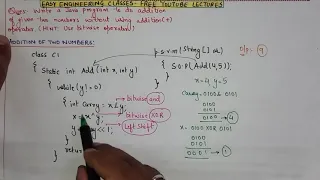 EASY ENGINEERING CLASSES- FREE YOUTUBE LECTURES
Ques- Write a Java program to do addition
of given two numbers without using addition(+)
operator (Hint: Use bitwise operator)
ADDITION OF TWO NUMBERS:
class C1
{ Static int Add(int x, int y)
{ while(y! = 0)
{ int carry = x & y;
x = x ^ y;
y = carry << 1;
}
return
}
bitwise and
bitwise XOR
Left Shift
p.s.v.m (String[] a)
{ S.O.P(Add(4,5));
}
}
O/P: 9
x=4, y=5
Carry: 0100 & 0101
0100
0101
0100 → 4
x: 0100 XOR 0101
0100
0101
0001 → 1